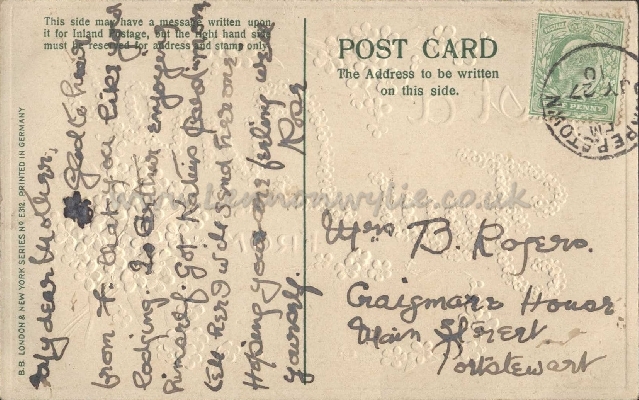 This side may have a message written upon
it for Inland Postage, but the right hand side
must be reserved for address and stamp only.
POST CARD
The Address to be written
on this side.
B.B. LONDON & NEW YORK SERIES No E312. PRINTED IN GERMANY
My dear Mother,
Glad to hear
from F. that you like your
lodging. Is Arthur enjoying
himself. Got Katies
tell her I will send her one
Hoping you are feeling well
yourself. Rose
Mrs B. Rogers.
Craigmare House
Main Street
Portstewart
PENNY
JY 27
www.lennonwylie.co.uk